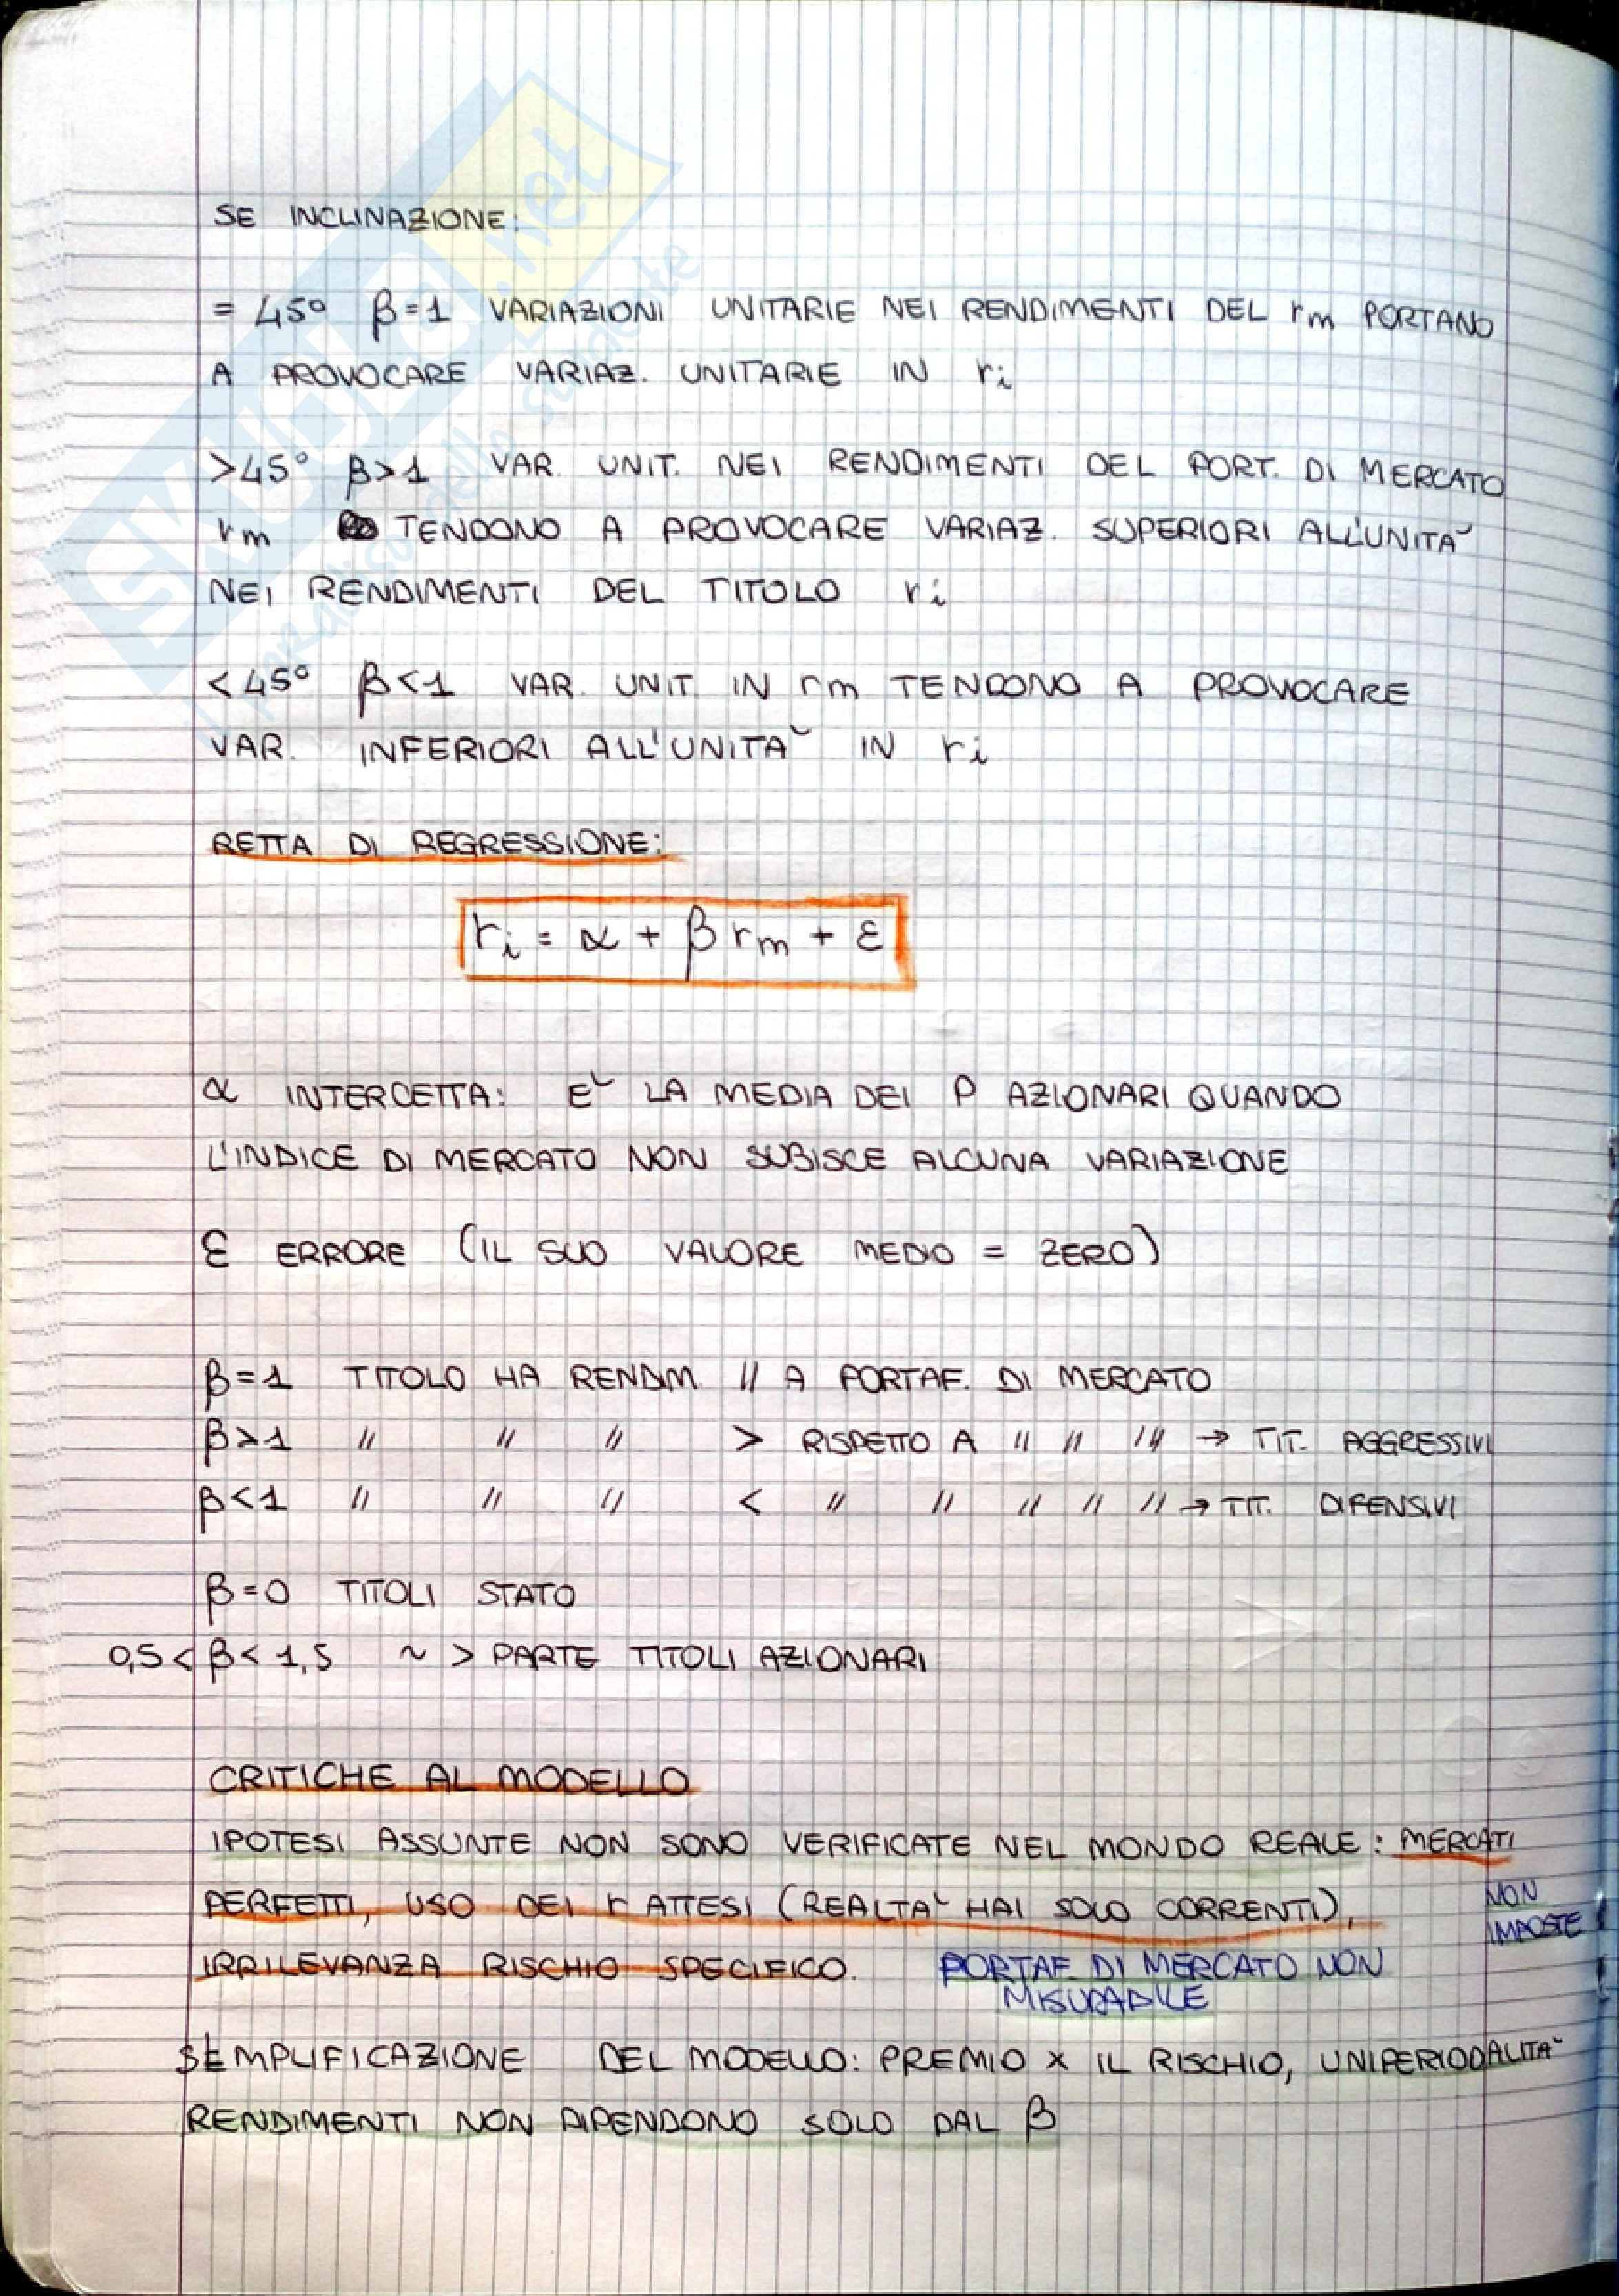 SE INCLINAZIONE:
= 45° β=1 VARIAZIONI UNITARIE NEI RENDIMENTI DEL rm PORTANO
A PROVOCARE VARIAZ. UNITARIE IN ri
>45° β>1 VAR. UNIT. NEI RENDIMENTI DEL PORT. DI MERCATO
rm TENDONO A PROVOCARE VARIAZ. SUPERIORI ALL'UNITA`
NEI RENDIMENTI DEL TITOLO ri
<45° β<1 VAR. UNIT. IN rm TENDONO A PROVOCARE
VAR. INFERIORI ALL'UNITA` IN ri
RETTA DI REGRESSIONE:
ri = α + β rm + ε
α INTERCETTA: E` LA MEDIA DEI P AZIONARI QUANDO
L'INDICE DI MERCATO NON SUBISCE ALCUNA VARIAZIONE
ε ERRORE (IL SUO VALORE MEDIO = ZERO)
β=1 TITOLO HA RENDIM. // A PORTAF. DI MERCATO
β>1 // // // > RISPETTO A // // // → TIT. AGGRESSIVI
β<1 // // // < // // // // // → TIT. DIFENSIVI
β=0 TITOLI STATO
0,5<β<1,5 ~ > PARTE TITOLI AZIONARI
CRITICHE AL MODELLO
IPOTESI ASSUNTE NON SONO VERIFICATE NEL MONDO REALE: MERCATI
PERFETTI, USO DEI r ATTESI (REALTA` HAI SOLO CORRENTI),
NON
IMPOSTE
IRRILEVANZA RISCHIO SPECIFICO. PORTAF. DI MERCATO NON
MISURABILE
SEMPLIFICAZIONE DEL MODELLO: PREMIO x IL RISCHIO, UNIPERIODALITA`
RENDIMENTI NON DIPENDONO SOLO DAL β
SKUOLA.net
il paradiso dello studente